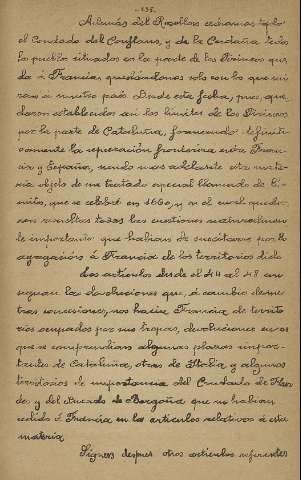 -135-
Además del Rosellón
el Condado del Conflans, y de la Cerdaña todos
los pueblos situados en la parte de los Pirineos que
da á Francia, quedándonos solo con los que mi
ran á nuestro país. Desde esta fecha, pues, que
daron establecidos así los límites de los Pirineos
por la parte de Cataluña, formando definiti
vamente la separación fronteriza entre Fran
cia y España, siendo mas adelante esta mate
ria objeto de un tratado especial llamado de lí
mites, que se celebró en 1660, y en el cual queda
ron resueltas todas las cuestiones
te importantes que habían de suscitarse por la
agregación á Francia de los territorios dichos
Los artículos desde el 44 al 48 en
seguan las devoluciones que, á cambio de nues
tras concesiones, nos hacía Francia de territo
rios ocupados por sus tropas, devoluciones en las
que se comprendían algunas plazas impor
tantes de Cataluña, otras de Italia y algunos
territorios de importancia del Condado de Flan
des y del Ducado de Borgoña que no habían
cedido á Francia en los artículos relativos á esta
materia
Siguen despues otros artículos referentes